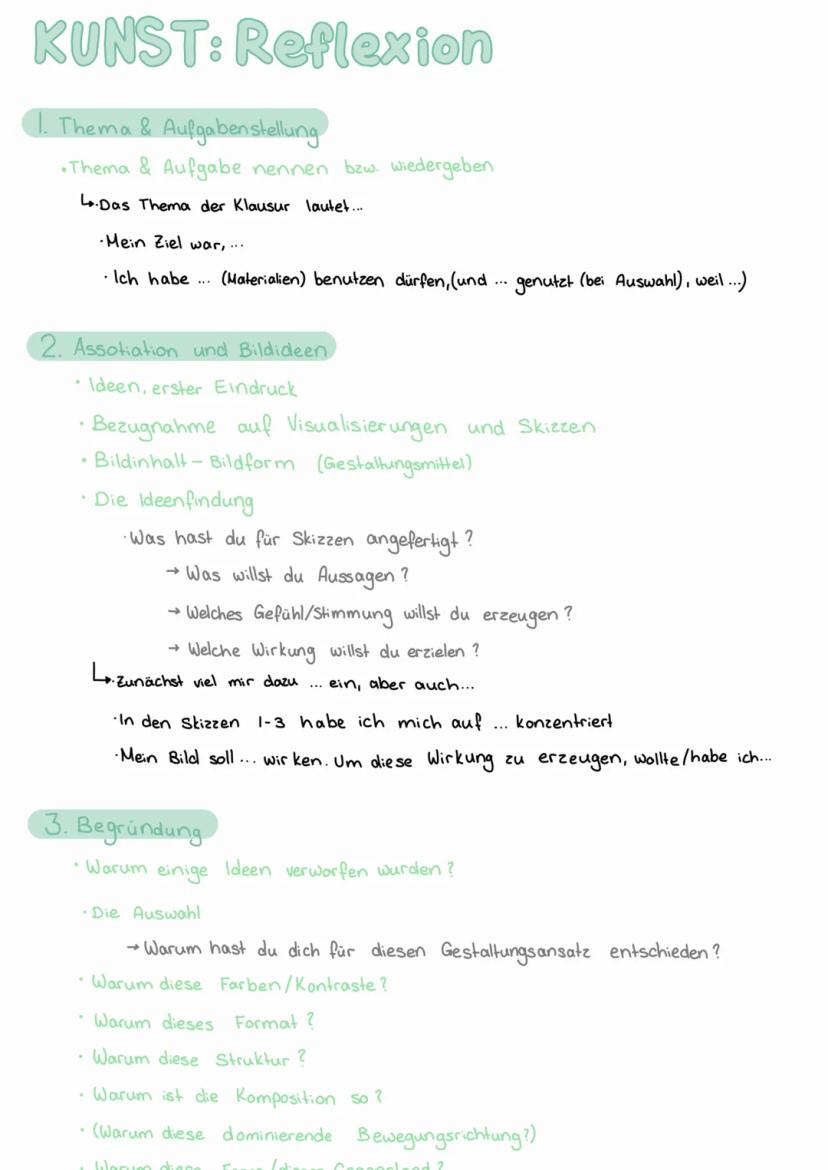 KUNST: Reflexion
1. Thema & Aufgabenstellung
•Thema & Aufgabe nennen bzw. wiedergeben
↳·Das Thema der Klausur lautet...
·Mein Ziel war, ...
· Ich habe ... (Materialien) benutzen dürfen,(und ... genutzt (bei Auswahl), weil ...)
2. Assotiation und Bildideen
· Ideen, erster Eindruck
· Bezugnahme auf Visualisierungen und Skizzen
· Bildinhalt – Bildform (Gestaltungsmittel)
· Die Ideenfindung
·Was hast du für Skizzen angefertigt ?
→ Was willst du Aussagen ?
→ Welches Gefühl/Stimmung willst du erzeugen ?
→ Welche Wirkung willst du erzielen ?
↳·Zunächst viel mir dazu ... ein, aber auch...
·In den Skizzen 1-3 habe ich mich auf ... konzentriert
·Mein Bild soll ... wirken. Um diese Wirkung zu erzeugen, wollte/habe ich...
3. Begründung
· Warum einige Ideen verworfen wurden ?
· Die Auswahl
→ Warum hast du dich für diesen Gestaltungsansatz entschieden ?
· Warum diese Farben/Kontraste ?
· Warum dieses Format ?
· Warum diese Struktur ?
· Warum ist die Komposition so ?
· (Warum diese dominierende Bewegungsrichtung?)
· Warum diese Form/diesen Gegenstand ?